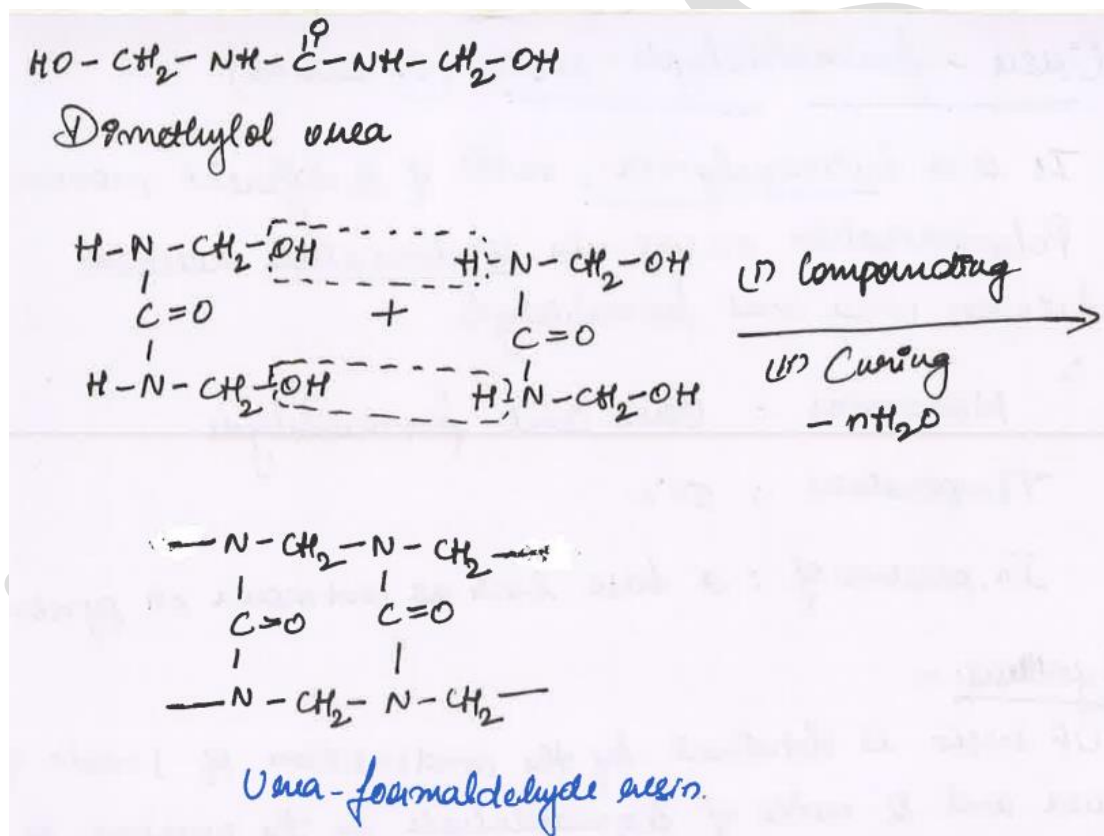 O
HO - CH2 - NH - C - NH - CH2 - OH
Dimethylol urea
H - N - CH2 - OH H - N - CH2 - OH (i) Compounding
C = O + C = O
H - N - CH2 - OH H - N - CH2 - OH (ii) Curing
- nH2O
— N - CH2 - N - CH2 —
C = O C = O
— N - CH2 - N - CH2 —
Urea - formaldehyde resin.